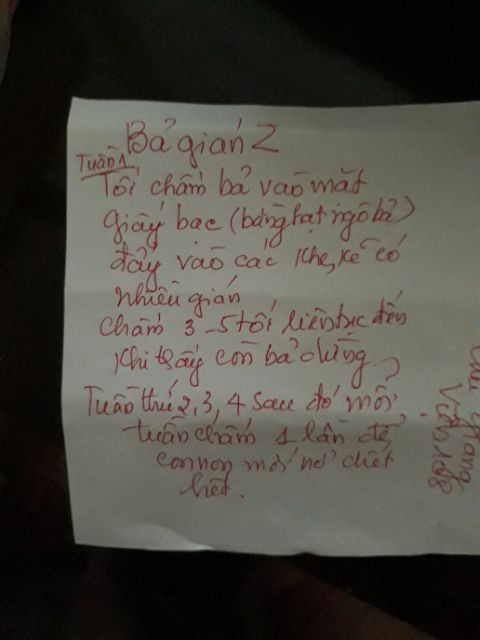 Bả gián 2
Tuần 1
Tối chấm bả vào mặt
giấy bạc (bằng hạt ngô bả)
đẩy vào các khe, kẽ có
nhiều gián
chấm 3-5 tối liên tục đến
khi thấy còn bả dừng.
Tuần thứ 2, 3, 4 sau đó mỗi
tuần chấm 1 lần để
con non mới nở chết
hết.